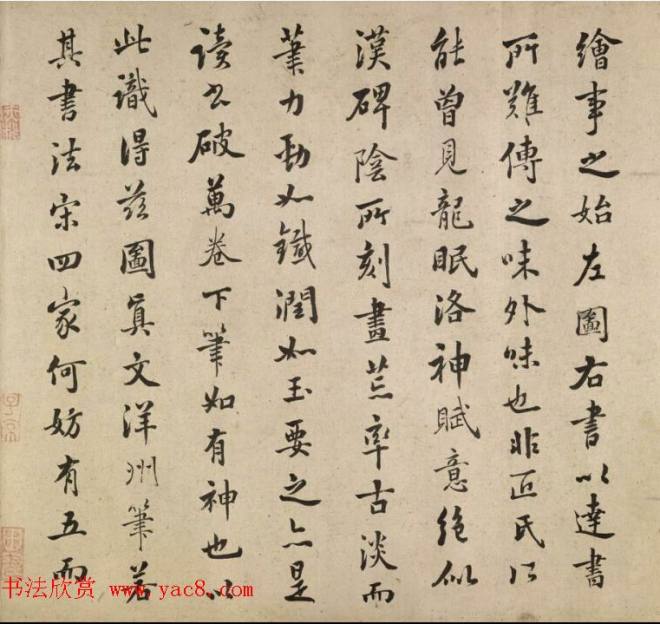 繪事之始左圖右書以達書
所難傳之味外味也非匠氏所
能曾見龍眠洛神賦意絕似
漢碑陰所刻畫荒率古淡而
筆力勁如鐵潤如玉要之亦是
读书破萬卷下筆如有神也以
此識得茲圖真文洋州筆若
其書法宋四家何妨有五而
书法欣赏 www.yac8.com